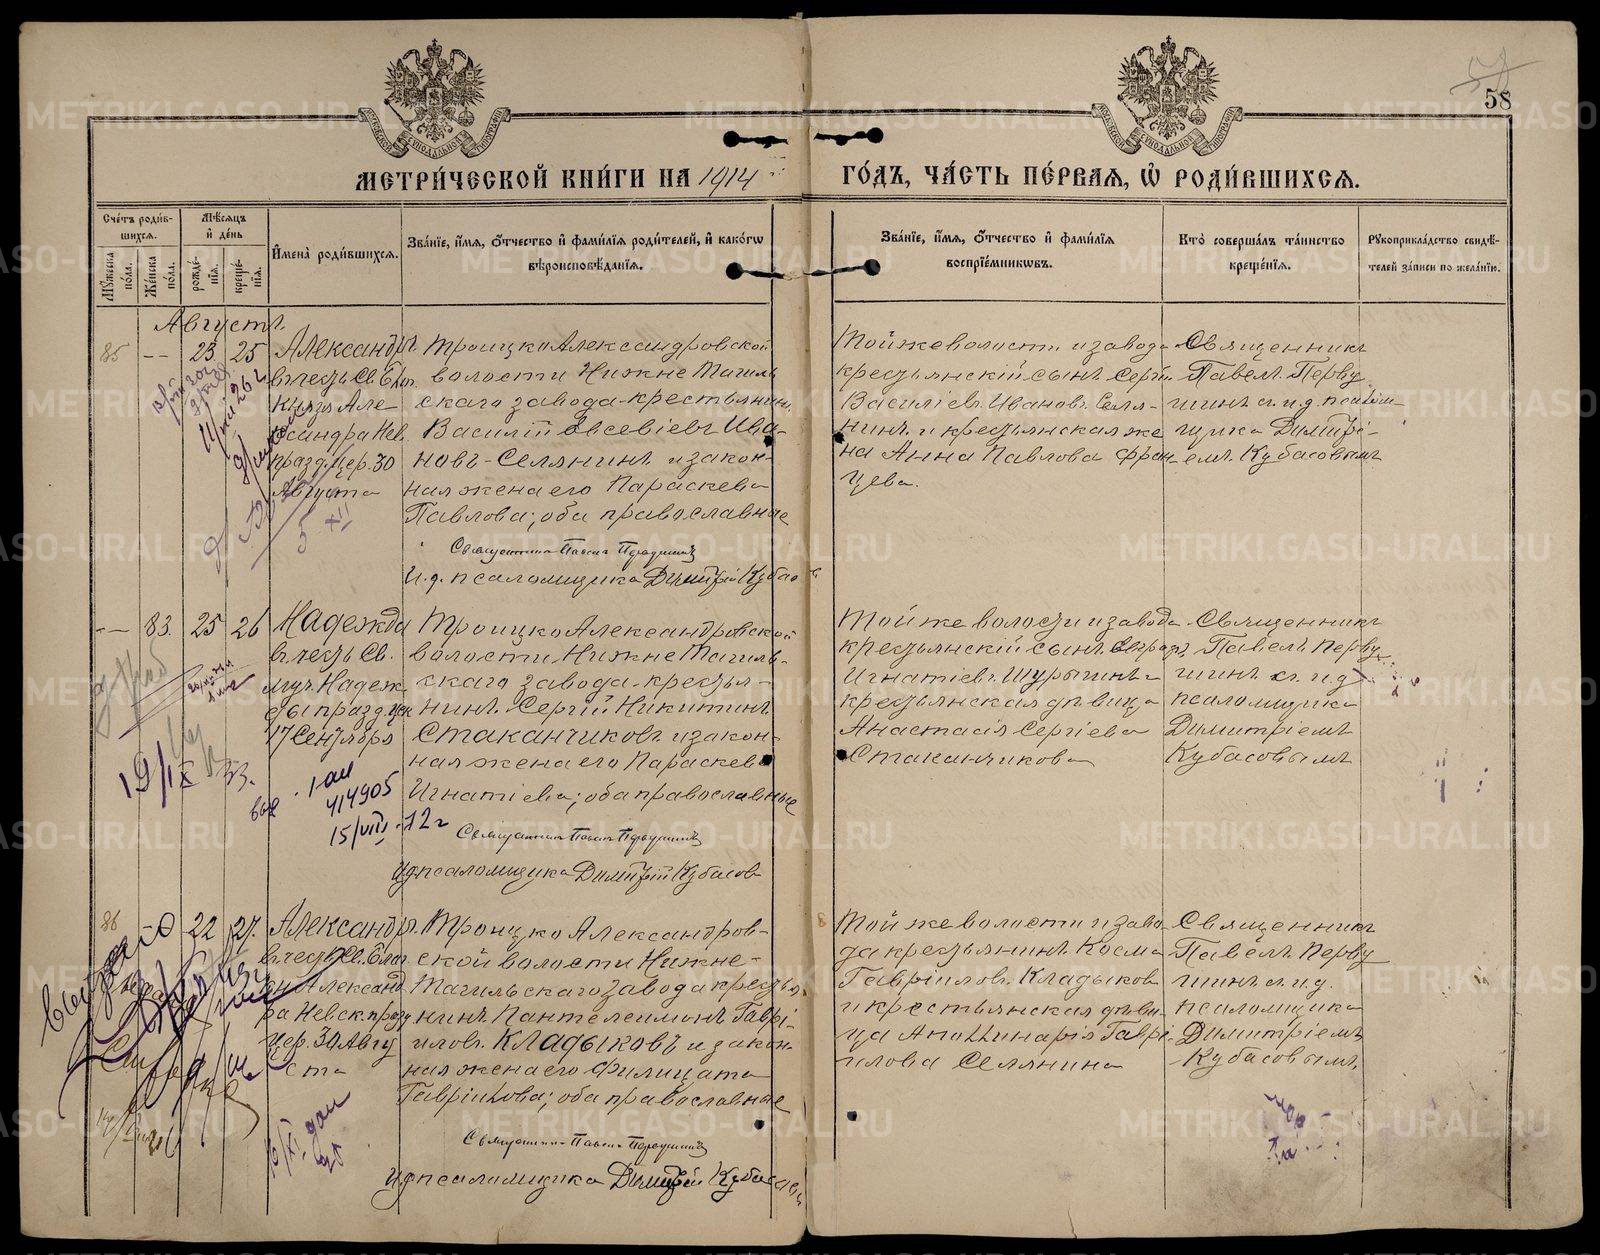 58
МЕТРИ́ЧЕСКОЙ КНИ́ГИ НА 1914 ГО́ДЪ, ЧА́СТЬ ПЕ́РВАЯ, Ѽ РОДИ́ВШИХСЯ.
Сче́тъ роди́в-
шихся.
Мѣ́сяцъ
и҆ де́нь
Мꙋ́жеска по́ла.
Же́нска по́ла.
рожде́-
нїѧ.
креще́-
нїѧ.
И҆мена̀ роди́вшихся.
Зва́нїе, и҆́мѧ, ѻ҆́тчество и҆ фами́лїѧ роди́телей, и҆ како́гѡ
вѣроисповѣ́данїѧ.
Зва́нїе, и҆́мѧ, ѻ҆́тчество и҆ фами́лїѧ
воспрїе́мникѡвъ.
Кто̀ соверша́лъ та́инство
креще́нїѧ.
Рꙋкоприкла́дство свидѣ́-
телей за́писи по жела́нїю.
Августъ.
85 -- 23 25
Александръ
въ честь Св. Благ.
Князя Але-
ксандра Нев.
празд. цер. 30
Августа
Троицко Александровской
волости Нижне Тагиль
скаго завода крестьянин.
Василій Евсевіевъ Ива-
новъ-Селянинъ и закон-
ная жена его Параскева
Павлова; оба православные
Священникъ Павелъ Первушинъ
И. д. псаломщика Димитрій Кубасов
Той же волости и завода
крестьянскій сынъ Сергій
Василіевъ Ивановъ Селя-
нинъ и крестьянская же
на Анна Павлова Фран-
цева.
Священникъ
Павелъ Перву
шинъ съ и. д. псалом-
щика Димитрі-
емъ Кубасовымъ
-- 83. 25 26
Надежда
въ честь Св.
муч. Надеж.
ды празд. цер
17 Сентября
Троицко Александровской
волости Нижне Тагиль-
скаго завода крестья-
нинъ Сергій Никитинъ
Стаканчиковъ и закон-
ная жена его Параскева
Игнатіева; оба православные
Священникъ Павелъ Первушинъ
И д псаломщика Димитрій Кубасов
Той же волости и завода
крестьянскій сынъ
Игнатіевъ Шурыгинъ и
крестьянская дѣвица
Анастасія Сергіева
Стаканчикова
Священникъ
Павелъ Перву
шинъ съ и. д
псаломщика
Димитріемъ
Кубасовымъ
19/IX 33.
414905
15/VIII-72 г
86 22 27.
Александръ
въ честь Св. Благ.
кн Александ
ра Невск. празд
цер. 30 Авгу
ста
Троицко Александров-
ской волости Нижне-
Тагильскаго завода кресть
нинъ Пантелеимонъ Гаврі-
иловъ Кладыковъ и закон-
ная жена его Филицата
Гавріилова; оба православные
Священникъ Павелъ Первушинъ
И д псаломщика Димитрій Кубасовъ
Той же волости и заво
да крестьянинъ Косма
Гавріиловъ Кладыков
и крестьянская дѣви-
ца Аполлинарія Гаврі-
илова Селянина
Священникъ
Павелъ Перву
шинъ съ и. д.
псаломщика
Димитріемъ
Кубасовымъ
METRIKI.GASO-URAL.RU